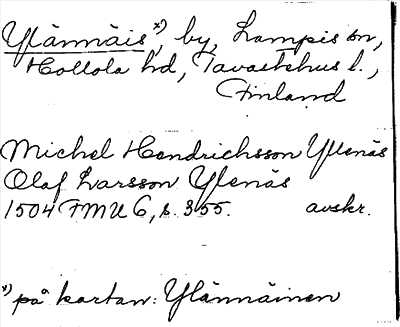 Ylännäis x), by, Lampis sn,
Hollola hd, Tavastehus l.,
Finland
Michel Hendrichsson Yllenäs
Olaf Larsson Ylenäs
1504 FMU 6, s. 355. avskr.
x) på kartan: Ylännäinen